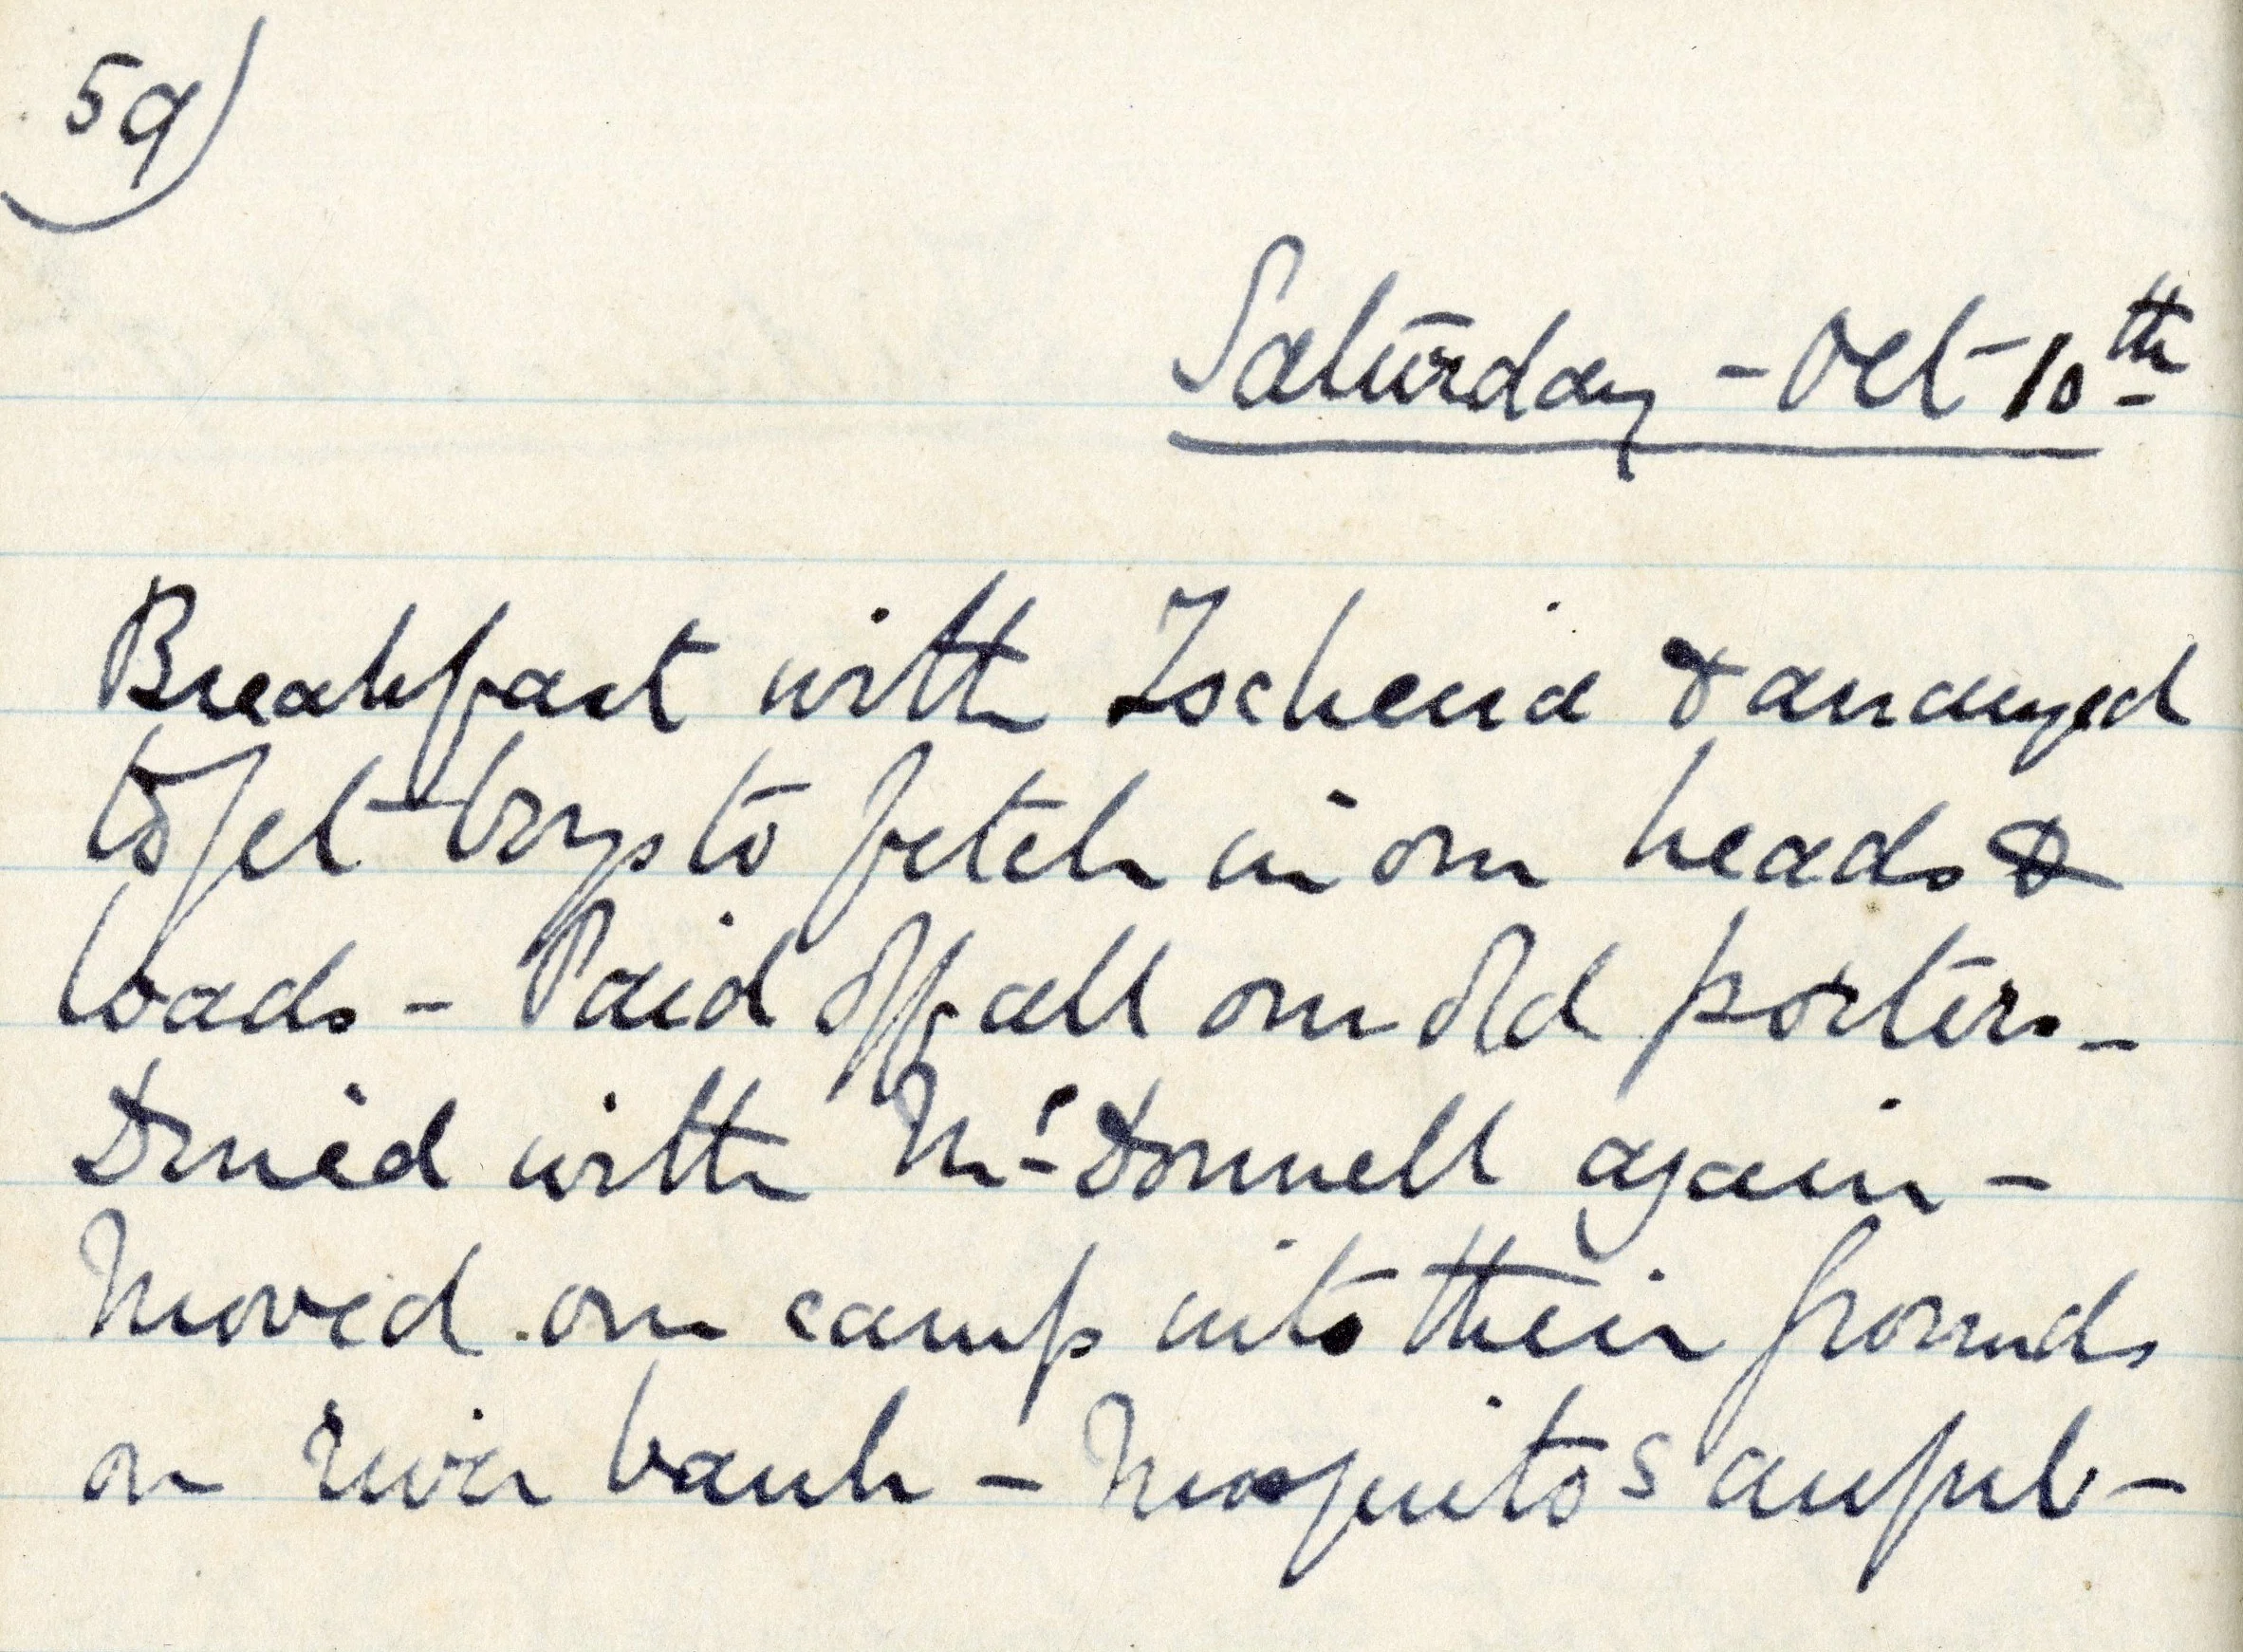 59)
Saturday - Oct - 10th
Breakfast with Ischeria & arranged
to get boys to fetch in our heads &
loads - Paid off all our old porters -
Dined with McDonnell again -
Moved our camp into their grounds
on river bank - Mosquitos awful -